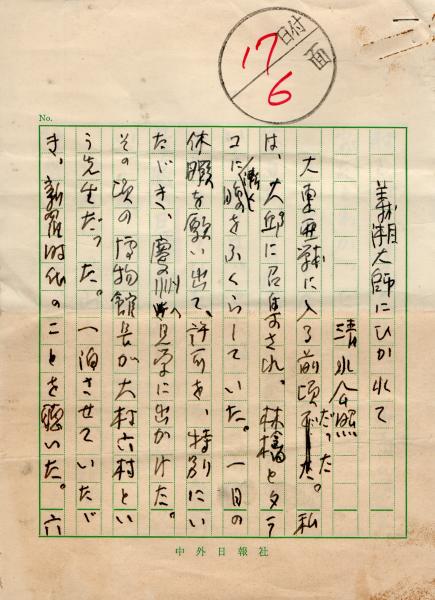 一
日付
面
17
6
No.
義湘大師にひかれて
清水公照
大東亜戦に入る前頃だった。私
は、大邱に召集され、林檎とタラ
コに腹をふくらしていた。一日の
休暇を願い出て、許可を、特別にい
ただき、慶州へ見学に出かけた。
その頃の博物館長が大村六村とい
う先生だった。一泊させていただ
き、新羅時代のことを聴いた。六
中外日報社